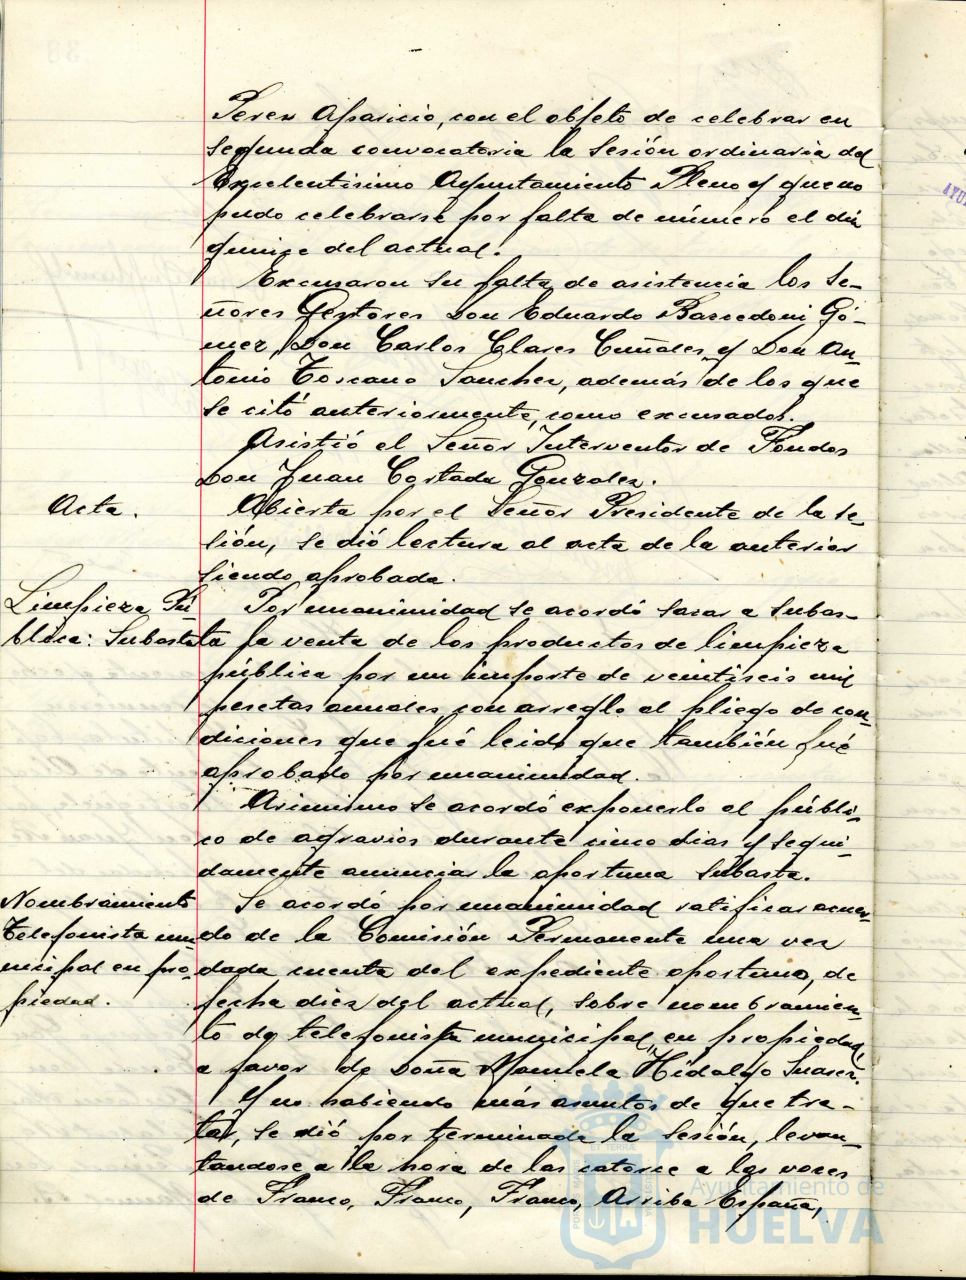 Perez Aparicio, con el objeto de celebrar en
segunda convocatoria la Sesión ordinaria del
Excelentisimo Ayuntamiento Pleno y que no
pudo celebrarse por falta de número el día
quince del actual.
Excusaron su falta de asistencia los Se-
ñores Gestores Don Eduardo Barcedoni Gó-
mez, Don Carlos Clares Cuñales y Don An-
tonio Toscano Sanchez, además de los que
se citó anteriormente, como excusados.
Asistió el Señor Interventor de Fondos
Don Juan Cortada Gonzalez.
Acta.
Abierta por el Señor Presidente de la se-
sión, se dió lectura al acta de la anterior
siendo aprobada.
Limpieza Pú-
blica: Subasta
Por unanimidad se acordó sacar a subas-
ta la venta de los productos de limpieza
pública por un importe de veintiseis mil
pesetas anuales con arreglo al pliego de con-
diciones que fué leido que también fué
aprobado por unanimidad.
Asimismo se acordó exponerlo al públi-
co de agravios durante cinco dias y segui-
damente anunciar la oportuna Subasta.
Nombramiento
telefonista mu-
nicipal en pro-
piedad.
Se acordó por unanimidad ratificar acuer-
do de la Comisión Permanente una vez
dada cuenta del expediente oportuno, de
fecha diez del actual, sobre nombramien-
to de telefonista municipal, en propiedad,
a favor de Doña Manuela Hidalgo Suarez.
Y no habiendo más asuntos de que tra-
tar, se dió por terminada la sesión, levan-
tandose a la hora de las catorce a las voces
de Franco, Franco, Franco, Arriba España,
Ayuntamiento de
HUELVA